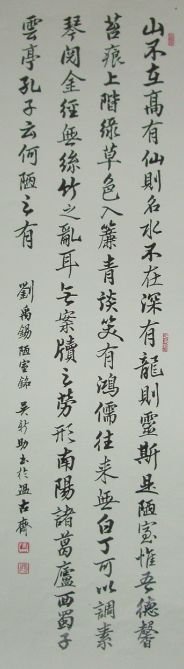 山不在高有仙則名水不在深有龍則靈斯是陋室惟吾德馨
苔痕上階綠草色入簾青談笑有鴻儒往來無白丁可以調素
琴閱金經無絲竹之亂耳無案牘之勞形南陽諸葛廬西蜀子
雲亭孔子云何陋之有
劉禹錫陋室銘 吳新助書於溫古齋